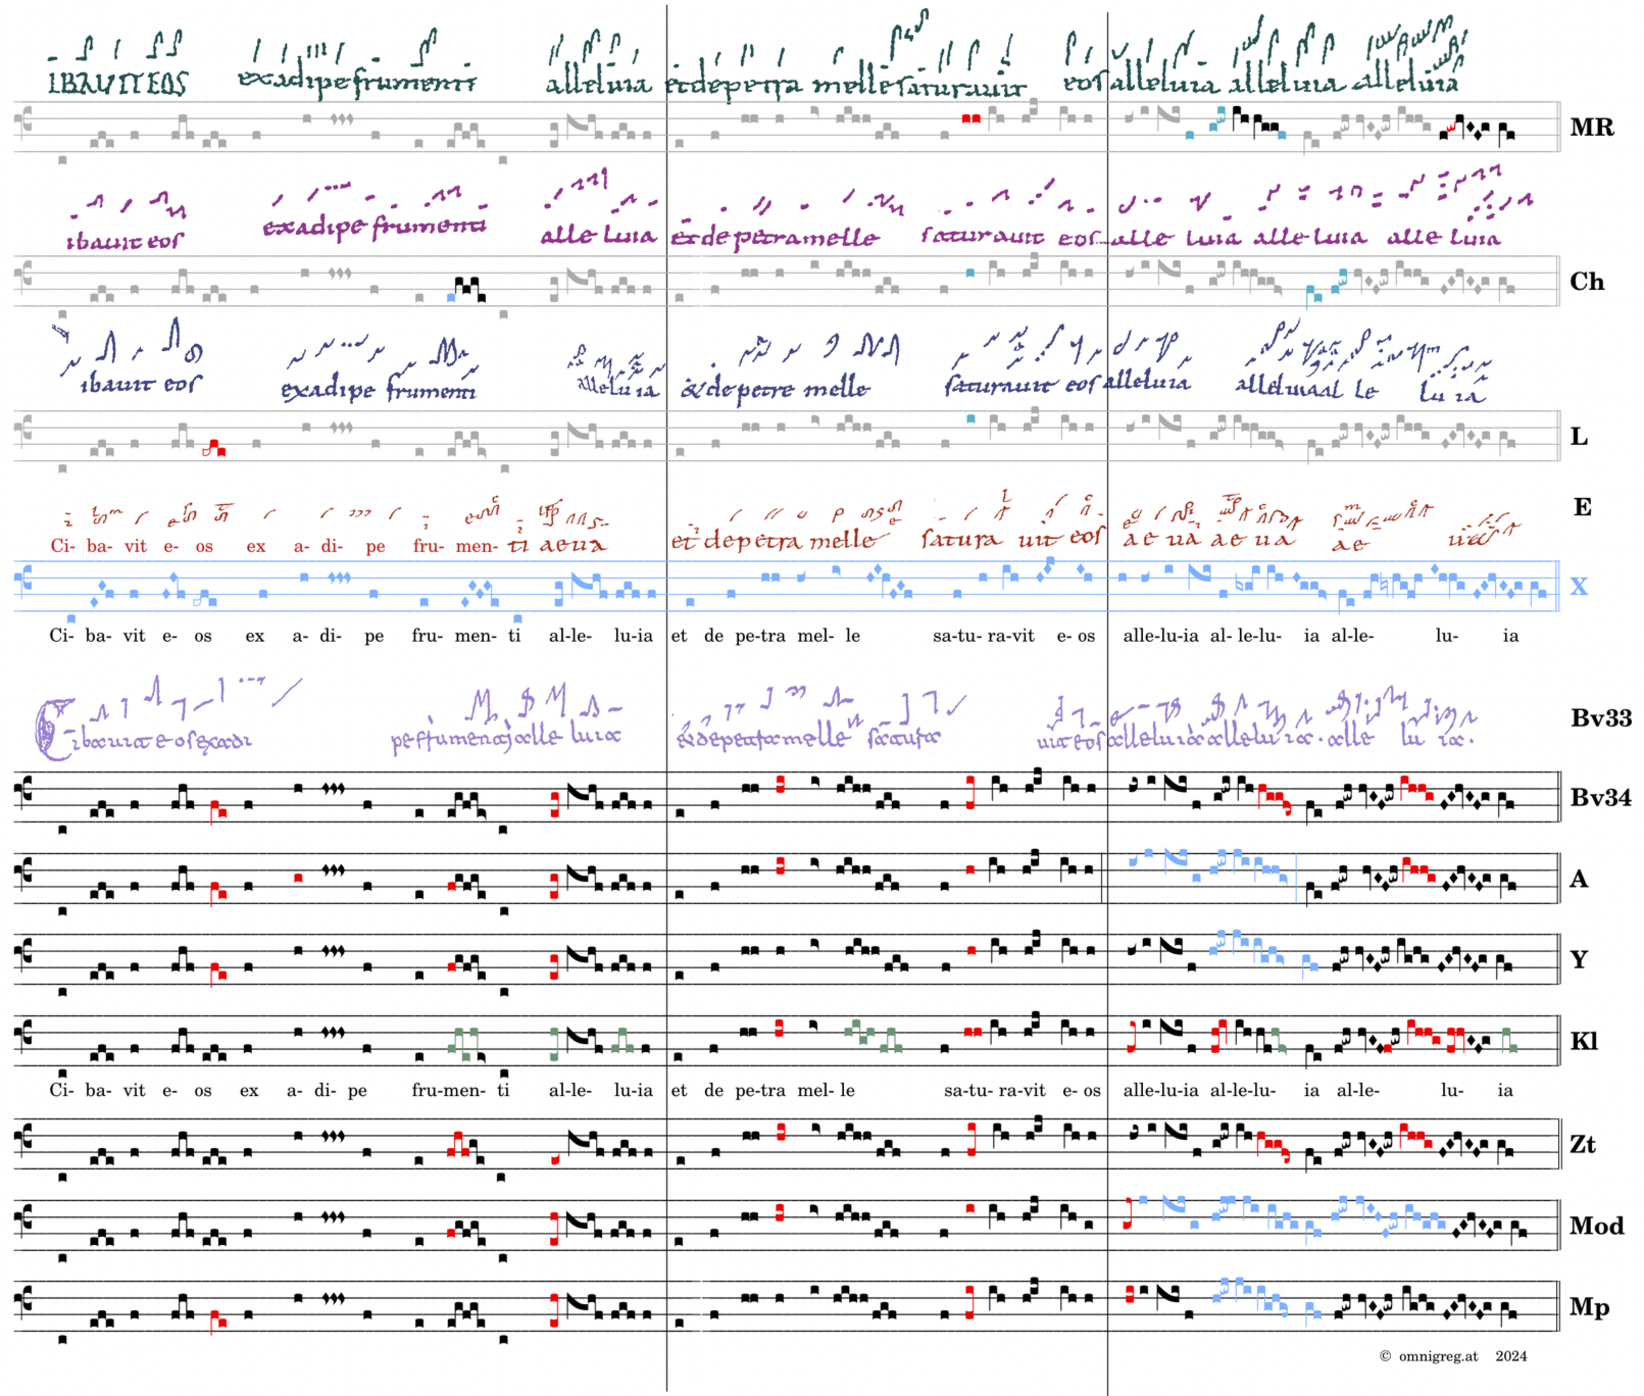 IBAVIT EOS exadipe frumenti alleluia et de petra melle saturauit eos alleluia alleluia alleluia
MR
ibauit eos exadipe frumenti alle luia et de petra melle saturauit eos alle luia alle luia alle luia
Ch
ibauit eos exadipe frumenti alleluia & de petre melle saturauit eos alleluia alleluiaal le lu ia
L
E
Ci- ba- vit e- os ex a- di- pe fru- men- ti aeua et de petra melle satura uit eos a e ua ae ua ae
X
Ci- ba- vit e- os ex a- di- pe fru- men- ti al-le- lu-ia et de pe-tra mel- le sa-tu- ra-vit e- os alle-lu-ia al- le-lu- ia al-le- lu- ia
Bv33
melle alleluia alle lu ia.
Bv34
A
Y
Kl
Ci- ba- vit e- os ex a- di- pe fru-men- ti al-le- lu-ia et de pe-tra mel- le sa-tu- ra-vit e- os alle-lu-ia al-le-lu- ia al-le- lu- ia
Zt
Mod
Mp
© omnigreg.at 2024